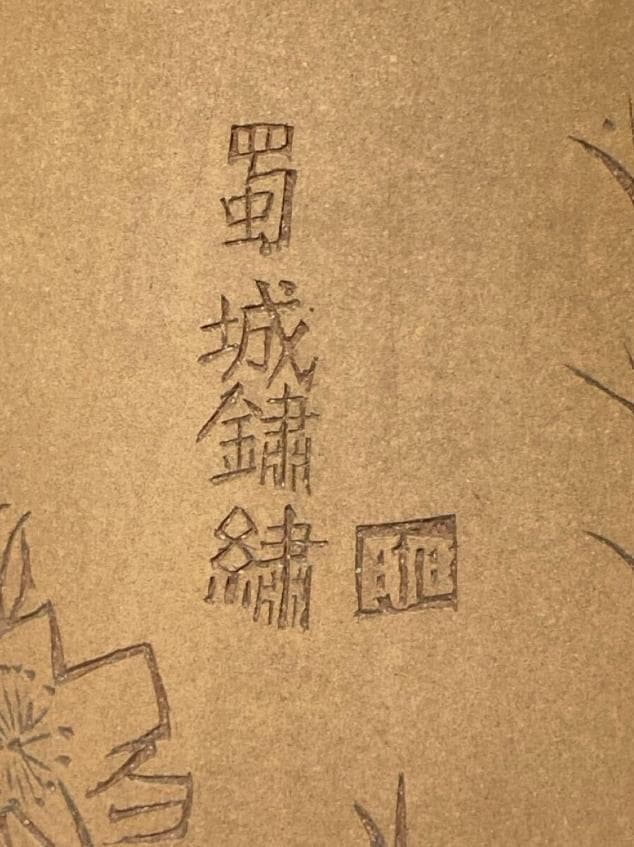 蜀城鏽繡